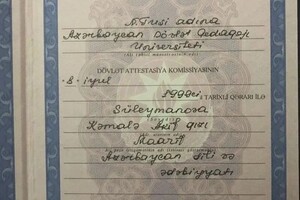 N. Tusi adına
Azərbaycan Dövlət Pedaqoji
Universiteti
DÖVLƏT ATTESTASIYA KOMISSIYASININ
8. iyul
1998ci, TARIXLI QƏRARI ILƏ
Süleymanova
Kəmalə Akif qızı
Maarif
Azərbaycan dili və
ədəbiyyatı